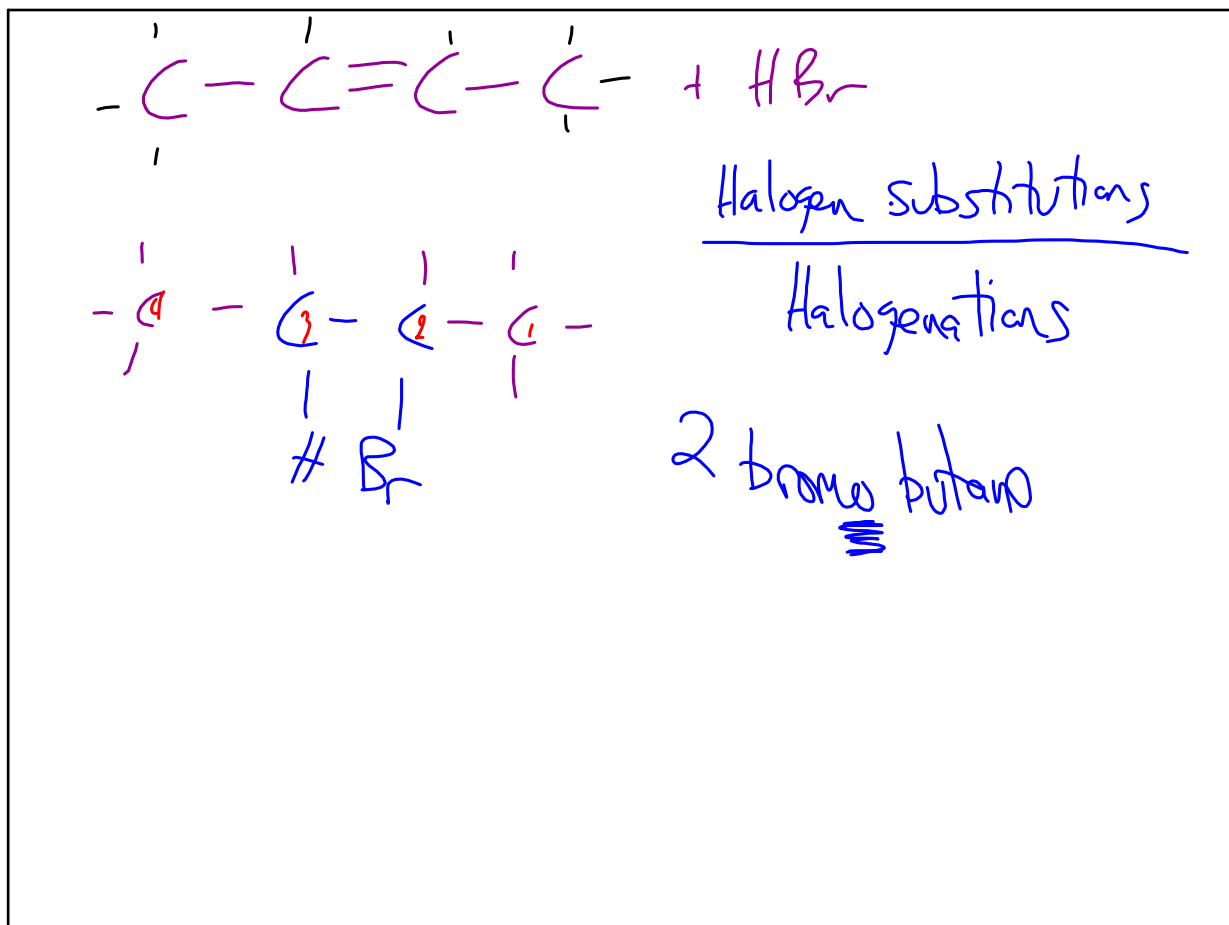 C - C = C - C - + HBr
Halogen substitutions
Halogenations
- C4 - C3 - C2 - C1 -
H Br
2 bromo butane